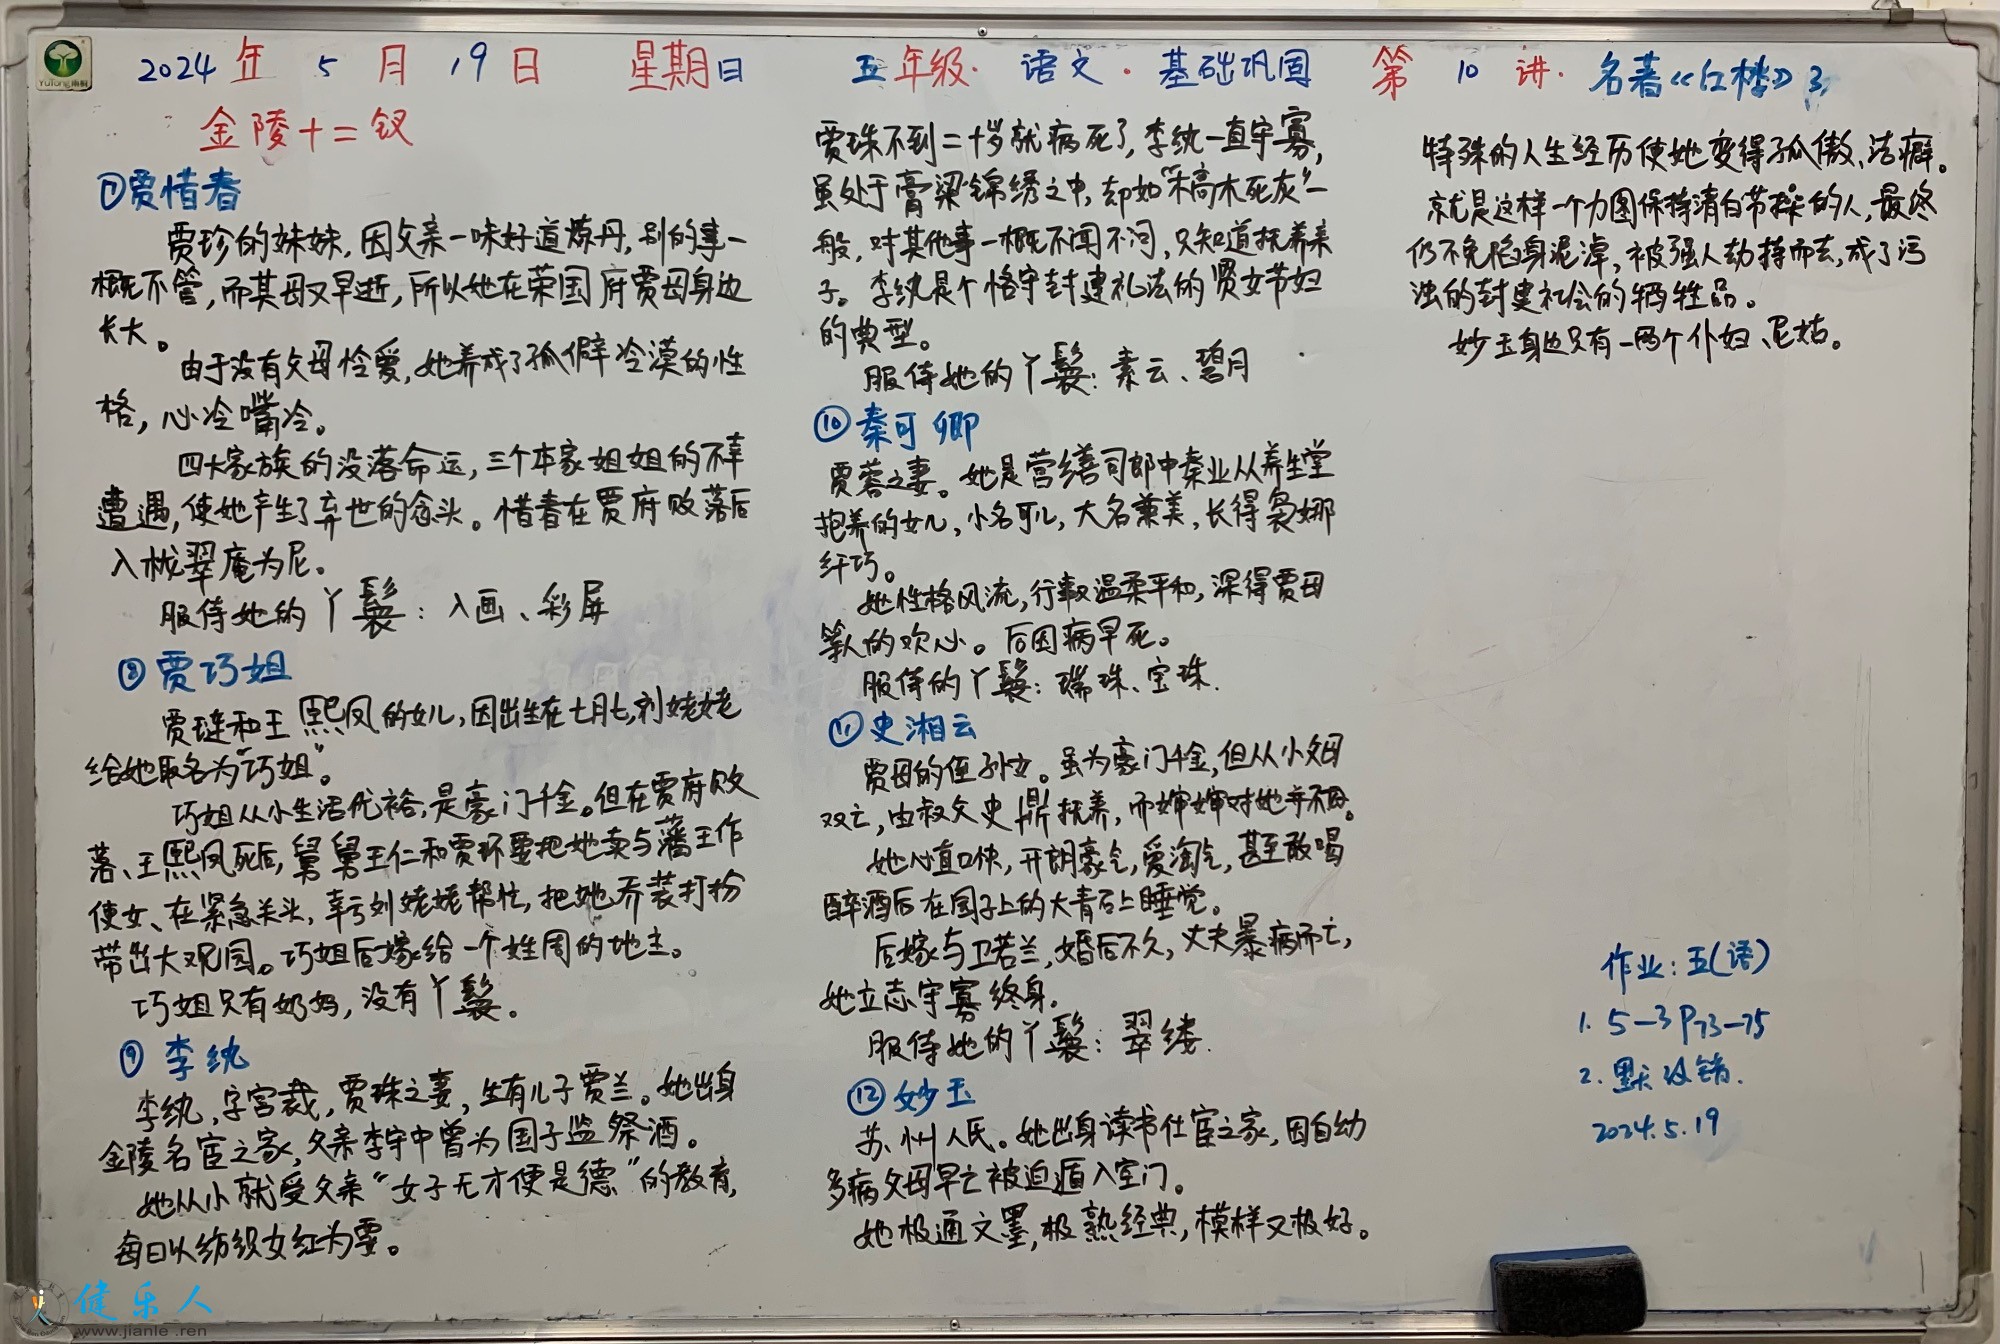 2024年5月19日 星期日 五年级·语文·基础巩固 第10讲·名著《红楼》3
YuTong
金陵十二钗
⑦贾惜春
贾珍的妹妹,因父亲一味好道炼丹,别的事一
概不管,而其母又早逝,所以她在荣国府贾母身边
长大。
由于没有父母怜爱,她养成了孤僻冷漠的性
格,心冷嘴冷。
四大家族的没落命运,三个本家姐姐的不幸
遭遇,使她产生了弃世的念头。惜春在贾府败落后
入栊翠庵为尼。
服侍她的丫鬟:入画、彩屏
⑧贾巧姐
贾琏和王熙凤的女儿,因出生在七月七,刘姥姥
给她取名为“巧姐”。
巧姐从小生活优裕,是豪门千金。但在贾府败
落、王熙凤死后,舅舅王仁和贾环要把她卖与藩王作
使女、在紧急关头,幸亏刘姥姥帮忙,把她乔装打扮
带出大观园。巧姐后嫁给一个姓周的地主。
巧姐只有奶妈,没有丫鬟。
⑨李纨
李纨,字宫裁,贾珠之妻,生有儿子贾兰。她出身
金陵名宦之家,父亲李守中曾为国子监祭酒。
她从小就受父亲“女子无才便是德”的教育,
每日以纺织女红为要。
贾珠不到二十岁就病死了,李纨一直守寡,
虽处于膏粱锦绣之中,却如“槁木死灰”一
般,对其他事一概不闻不问,只知道抚养亲
子。李纨是个恪守封建礼法的贤女节妇
的典型。
服侍她的丫鬟:素云、碧月
⑩秦可卿
贾蓉之妻。她是营缮司郎中秦业从养生堂
抱养的女儿,小名可儿,大名兼美,长得袅娜
纤巧。
她性格风流,行事又温柔平和,深得贾母
等人的欢心。后因病早死。
服侍的丫鬟:瑞珠、宝珠.
⑪史湘云
贾母的侄孙女。虽为豪门千金,但从小父母
双亡,由叔父史鼎抚养,而婶婶对她并不好。
她心直口快,开朗豪气,爱淘气,甚至敢喝
醉酒后在园子上的大青石上睡觉。
后嫁与卫若兰,婚后不久,丈夫暴病而亡,
她立志守寡终身.
服侍她的丫鬟:翠缕.
⑫妙玉
苏州人民。她出身读书仕宦之家,因自幼
多病父母早亡被迫遁入空门。
她极通文墨,极熟经典,模样又极好。
特殊的人生经历使她变得孤傲、洁癖。
就是这样一个力图保持清白节操的人,最终
仍不免陷身泥淖,被强人劫持而去,成了污
浊的封建社会的牺牲品。
妙玉身边只有一两个仆妇、尼姑。
作业:五(语)
1. 5-3 P73-75
2. 默 改错.
2024.5.19
健乐人
www.jianle.ren